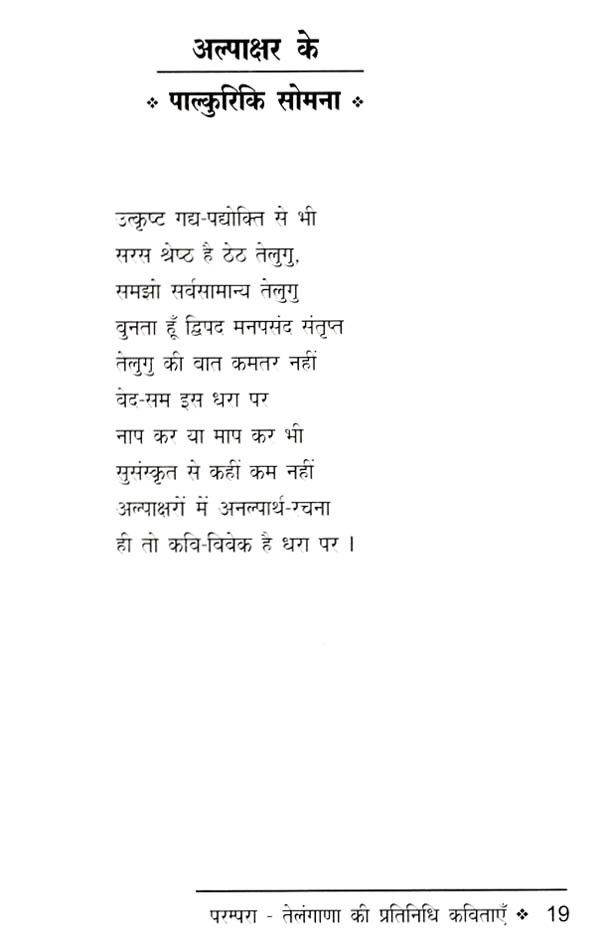 अल्पाक्षर के
❖ पाल्कुरिकि सोमना ❖
उत्कृष्ट गद्य-पद्योक्ति से भी
सरस श्रेष्ठ है ठेठ तेलुगु,
समझो सर्वसामान्य तेलुगु
बुनता हूँ द्विपद मनपसंद संतृप्त
तेलुगु की बात कमतर नहीं
वेद-सम इस धरा पर
नाप कर या माप कर भी
सुसंस्कृत से कहीं कम नहीं
अल्पाक्षरों में अनल्पार्थ-रचना
ही तो कवि-विवेक है धरा पर ।
परम्परा - तेलंगाणा की प्रतिनिधि कविताएँ ❖ 19